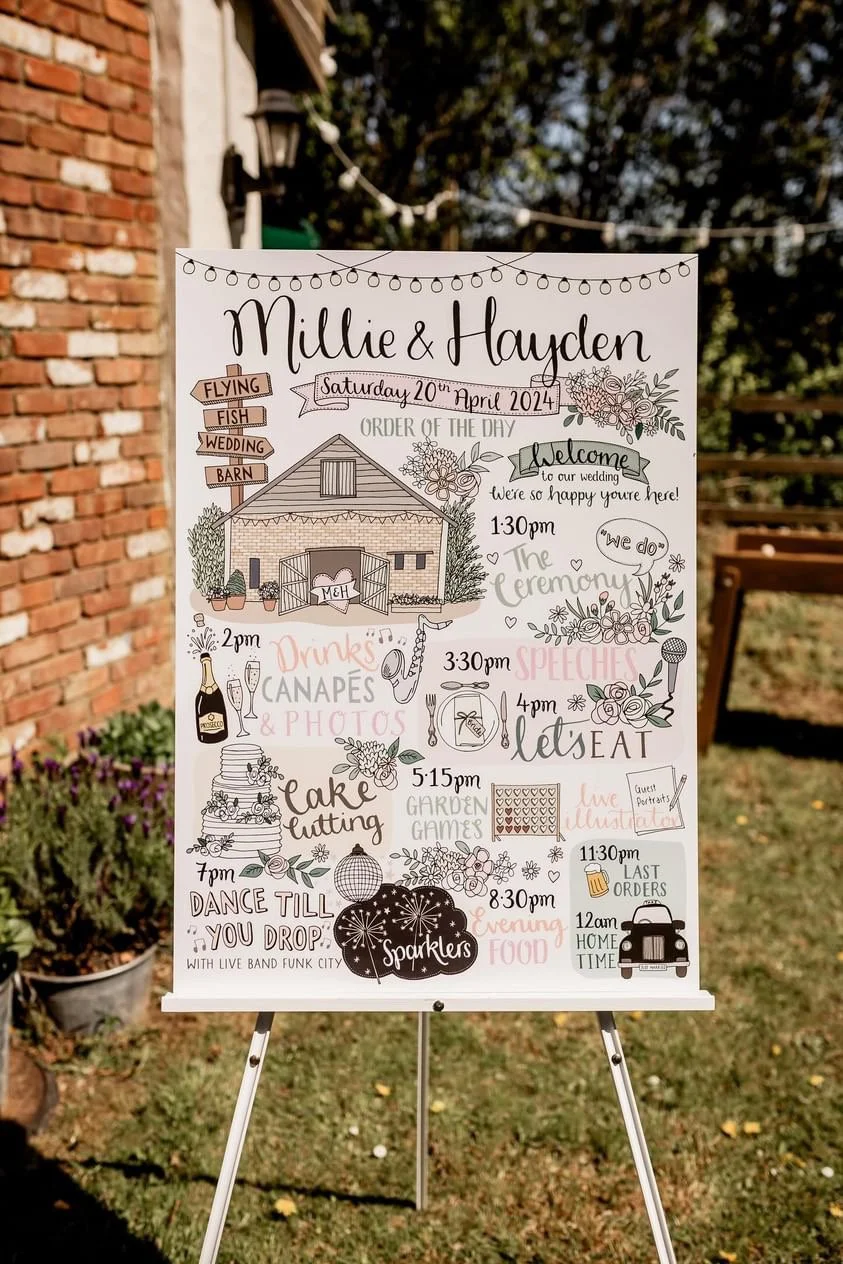 Millie & Hayden
Saturday 20th April 2024
ORDER OF THE DAY
FLYING
FISH
WEDDING
BARN
Welcome
to our wedding
We're so happy you're here!
M&H
1:30pm
"we do"
The
Ceremony
2pm
Drinks
CANAPÉS
& PHOTOS
PROSECCO
3:30pm SPEECHES
4pm
let's EAT
Cake
Cutting
5:15pm
GARDEN
GAMES
live
illustrator
Guest
Portraits
7pm
DANCE TILL
YOU DROP
WITH LIVE BAND FUNK CITY
Sparklers
8:30pm
Evening
FOOD
11:30pm
LAST
ORDERS
12am
HOME
TIME
JUST MARRIED